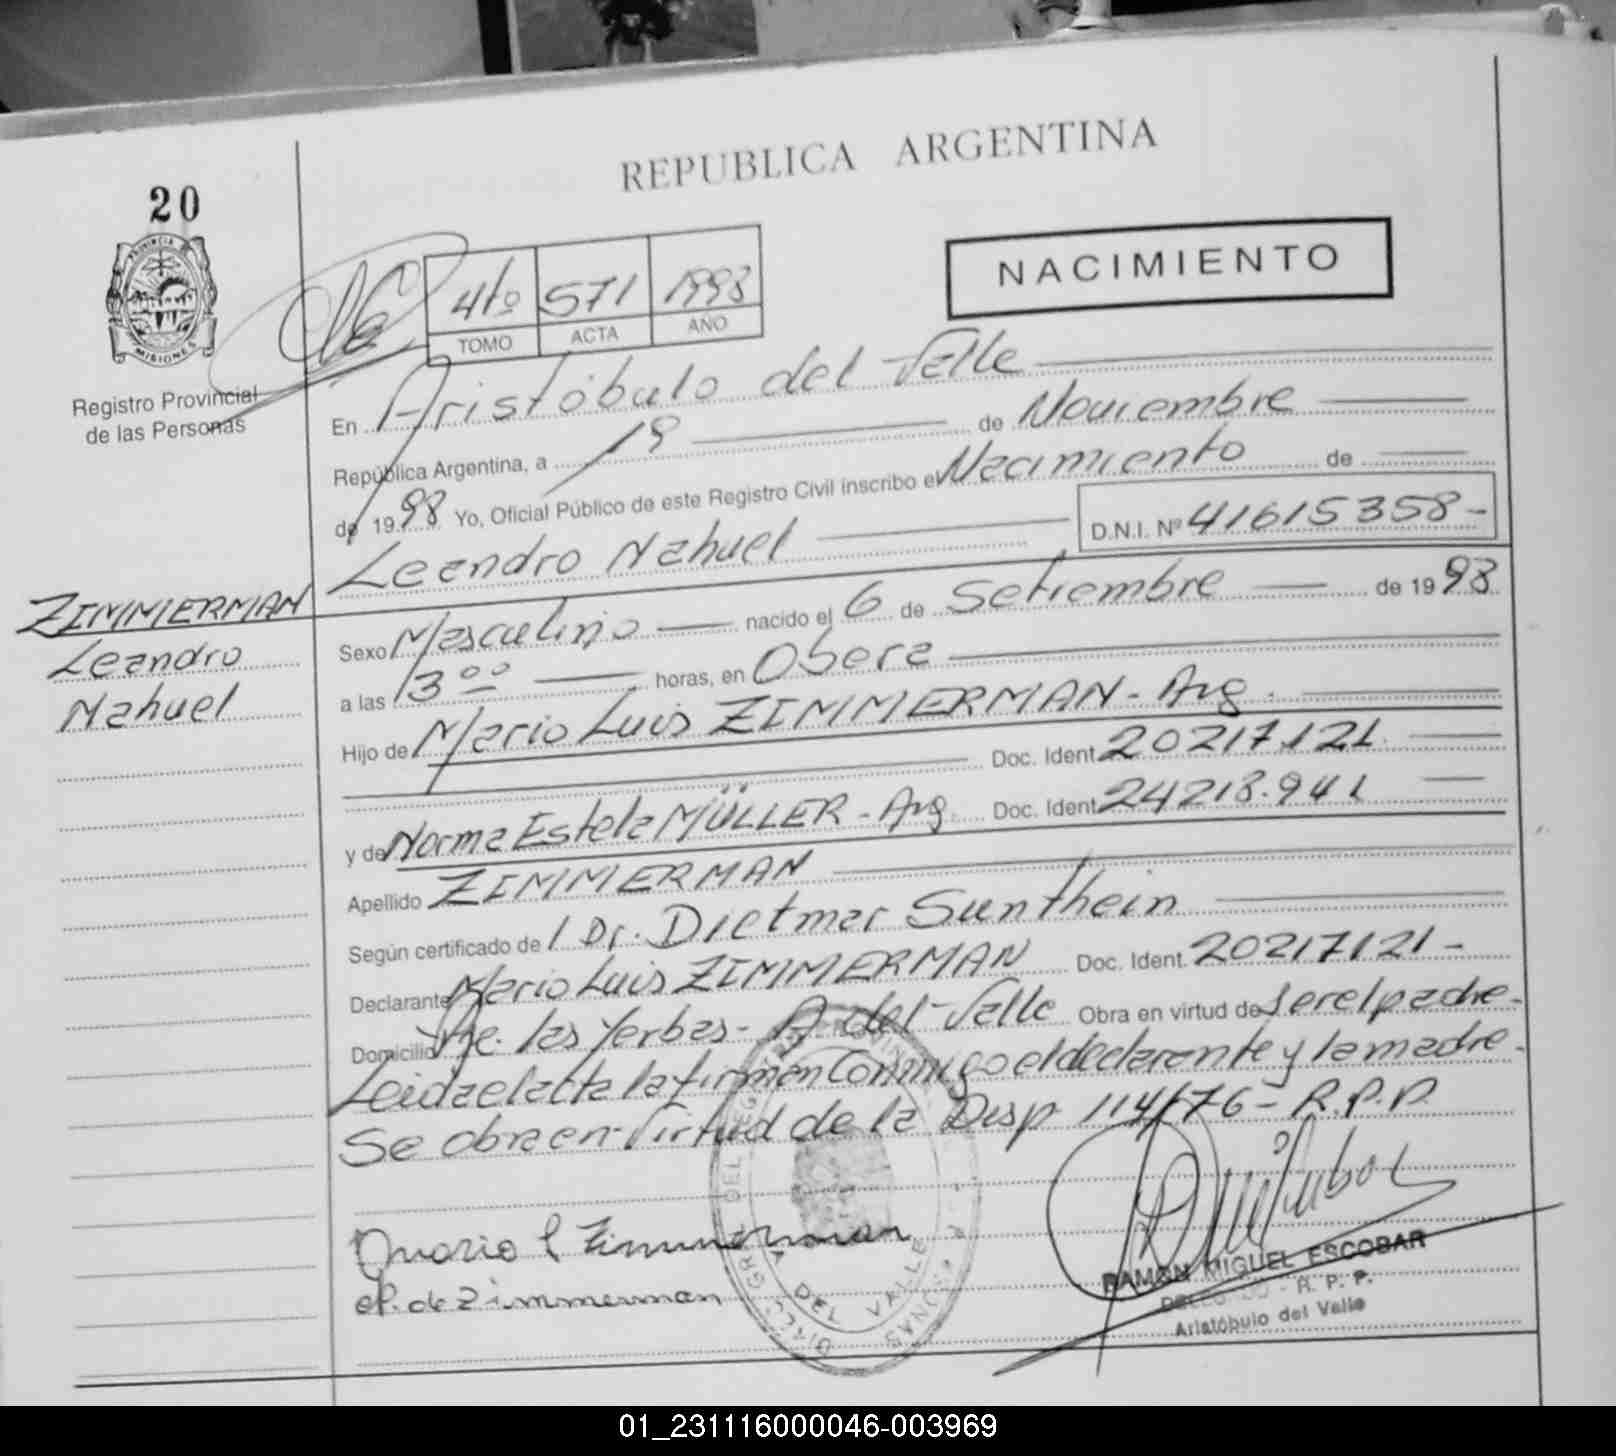 REPUBLICA ARGENTINA
20
PROVINCIA
MISIONES
Registro Provincial
de las Personas
4to 571 1998
TOMO ACTA AÑO
NACIMIENTO
En Aristóbulo del Valle
República Argentina, a 19 de Noviembre
de 1998 Yo, Oficial Público de este Registro Civil inscribo el Nacimiento de
Leandro Nahuel D.N.I. Nº 41615358-
ZIMMERMAN
Leandro
Nahuel
Sexo Masculino nacido el 6 de Setiembre de 1998
a las 13 oo horas, en Oberá
Hijo de Mario Luis ZIMMERMAN - Arg.
Doc. Ident 20217.121
y de Norma Estela MÜLLER - Arg. Doc. Ident 24218.941
Apellido ZIMMERMAN
Según certificado de 1 Dr. Dietmar Sunthein
Declarante Mario Luis ZIMMERMAN Doc. Ident. 20217121-
Domicilio las Yerbas - A del Valle Obra en virtud de ser el padre-
Leida el acta la firman Conmigo el declarante y la madre-
Se obra en virtud de la Disp 114/76 - R.P.P.
Mario L Zimmerman
de Zimmerman
DEL VALLE
RAMON MIGUEL ESCOBAR
R. P. P.
Aristóbulo del Valle
01_231116000046-003969